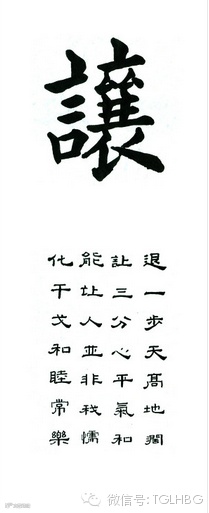 讓
退一步天高地闊
让三分心平氣和
能让人並非我懦
化干戈和睦常樂
微信号: TGLHBG